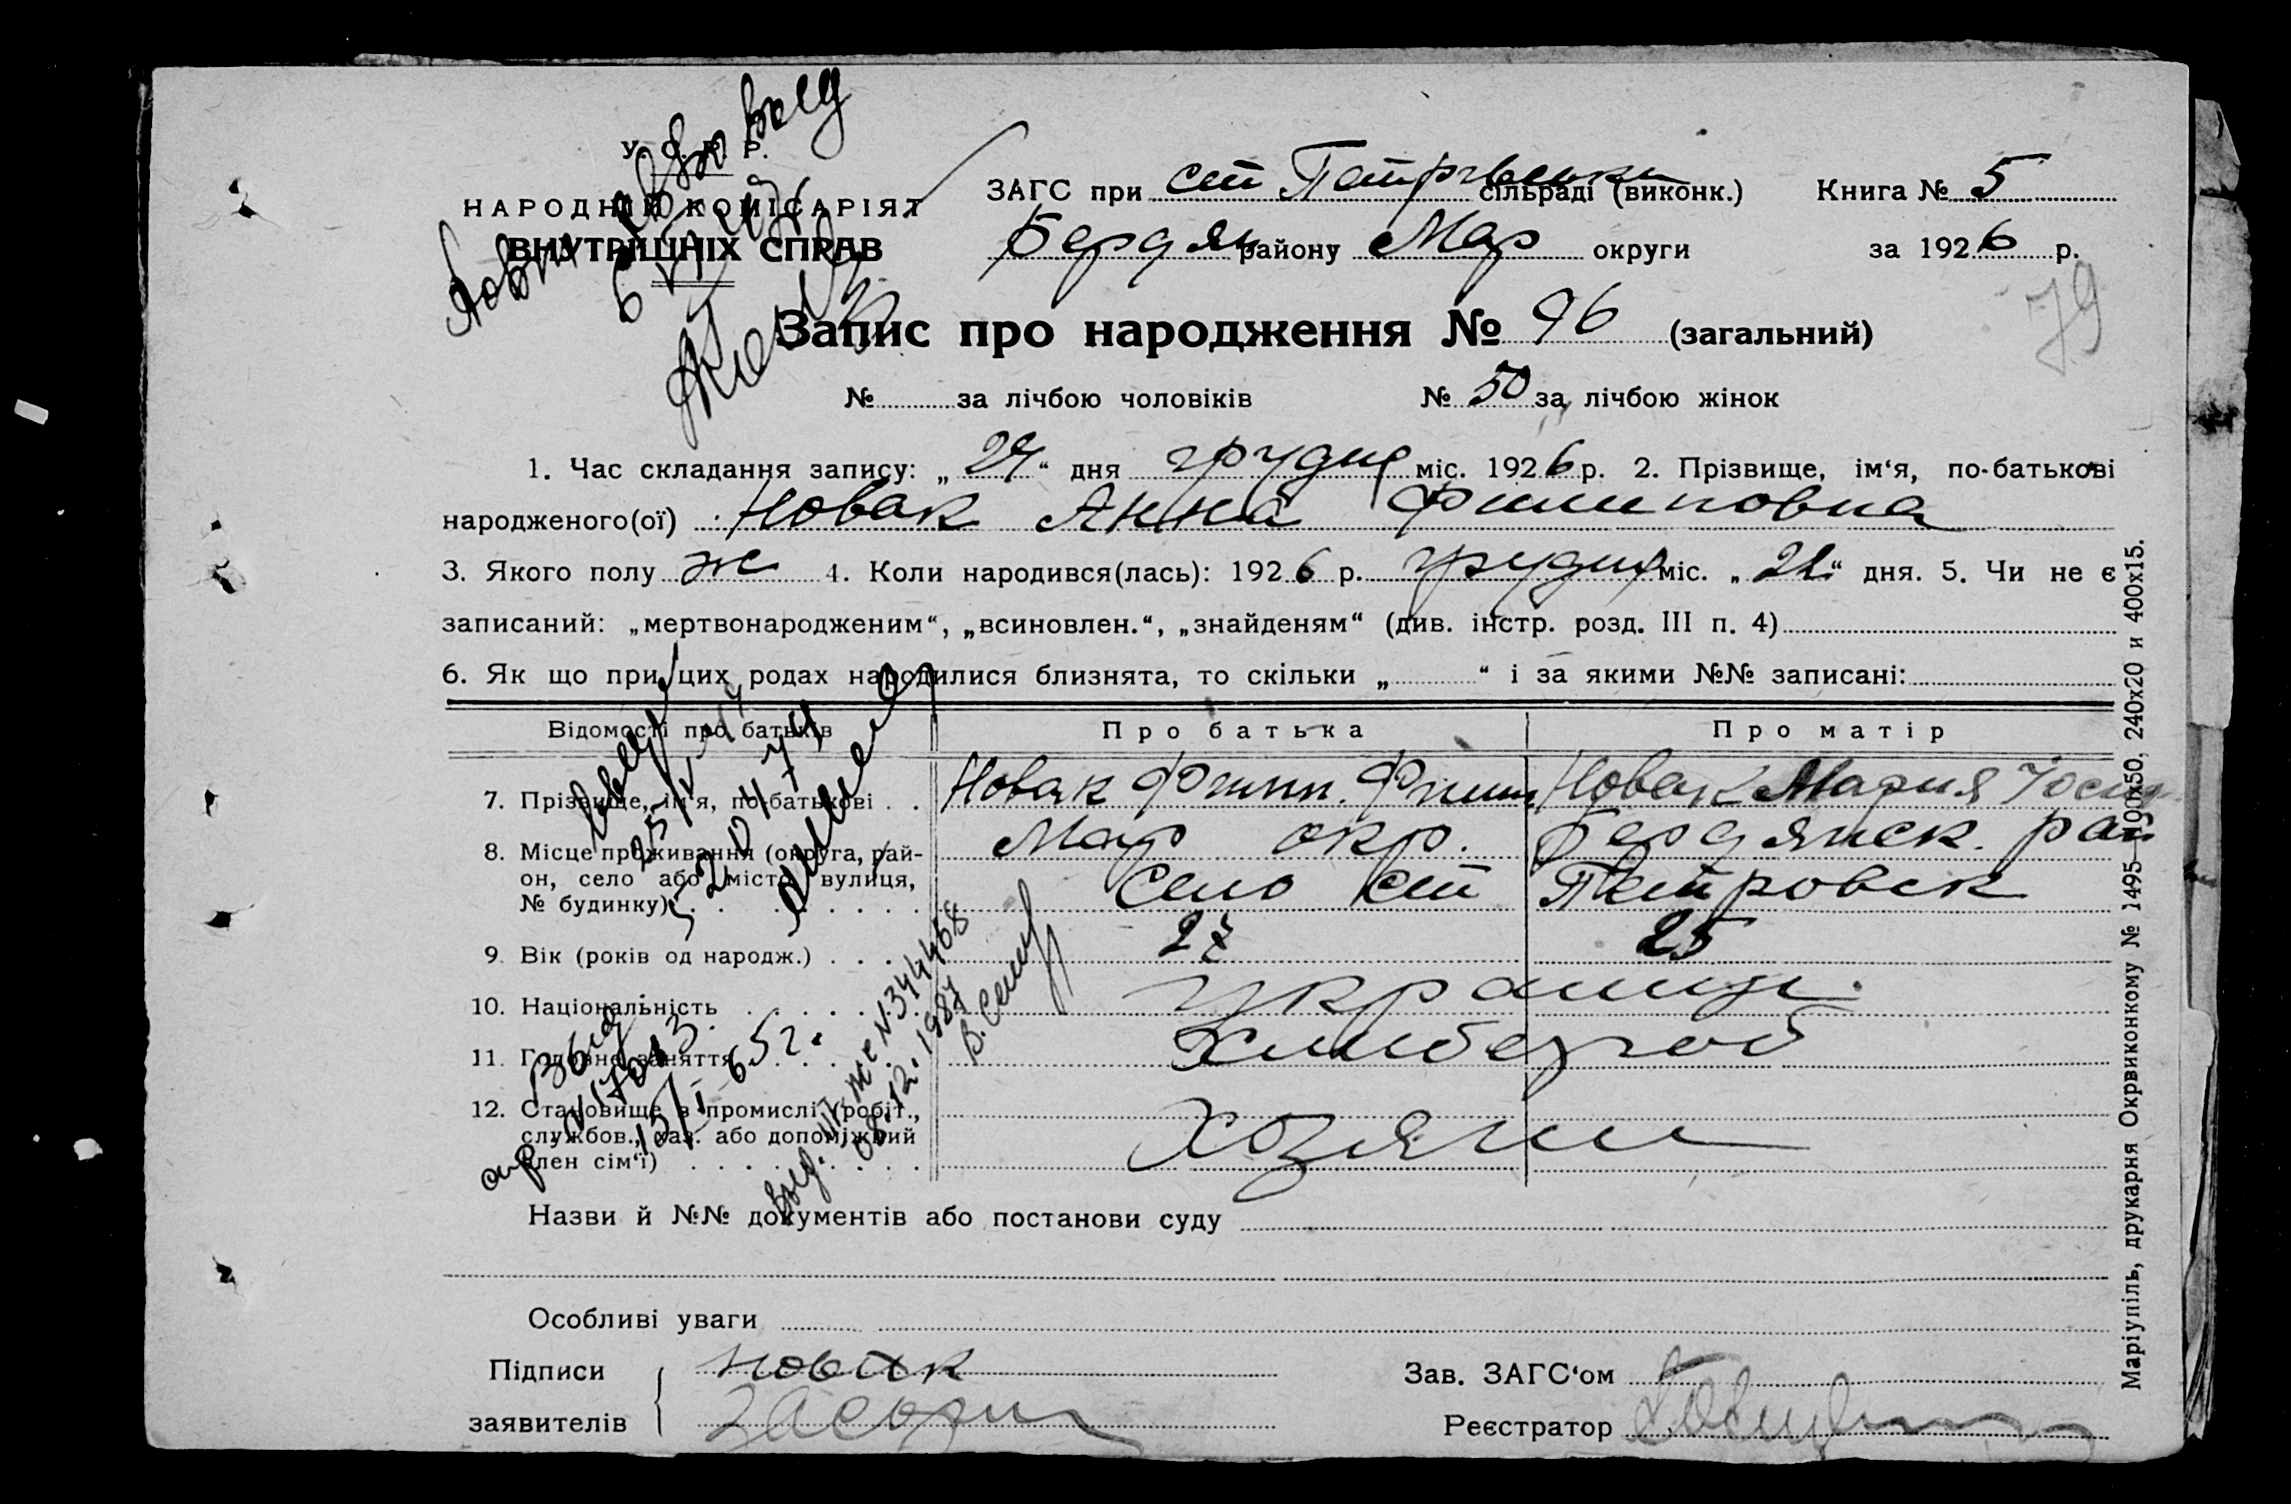 У. С. Р. Р.
НАРОДНІЙ КОМІСАРІЯТ
ВНУТРІШНІХ СПРАВ
ЗАГС при ст Петрівськ сільраді (виконк.) Книга № 5
Бердян району Мар округи за 1926 р.
79
Запис про народження № 96 (загальний)
№ за лічбою чоловіків № 50 за лічбою жінок
1. Час складання запису: „ 24 “ дня грудня міс. 1926 р. 2. Прізвище, ім‘я, по-батькові
народженого(ої) Новак Анна Филиповна
3. Якого полу ж 4. Коли народився(лась): 1926 р. грудня міс. „ “ дня. 5. Чи не є
записаний: „мертвонародженим“, „всиновлен.“, „знайденям“ (див. інстр. розд. III п. 4)
6. Як що при цих родах народилися близнята, то скільки „ “ і за якими №№ записані:
Відомості про батьків Про батька Про матір
7. Прізвище, ім‘я, по-батькові . . Новак Филип. Филип Новак Мария Йосип
8. Місце проживання (округа, рай- Мар окр. Бердянск. рай
он, село або місто, вулиця, Село ст Петровск
№ будинку)
9. Вік (років од народж.) . . . 27 25
10. Національність украинц.
11. Головне заняття Хлибороб
12. Становище в промислі (робіт.,
службов., хаз. або допоміжний Хозяин
член сім‘ї)
выд
№ 17013
15/I 65 г.
выд. III-ЖС № 344468
08.12.1987
Назви й №№ документів або постанови суду
Особливі уваги
Підписи Новак Зав. ЗАГС‘ом
заявителів Реєстратор
Маріупіль, друкарня Окрвиконкому № 1495—100х50, 240х20 и 400х15.